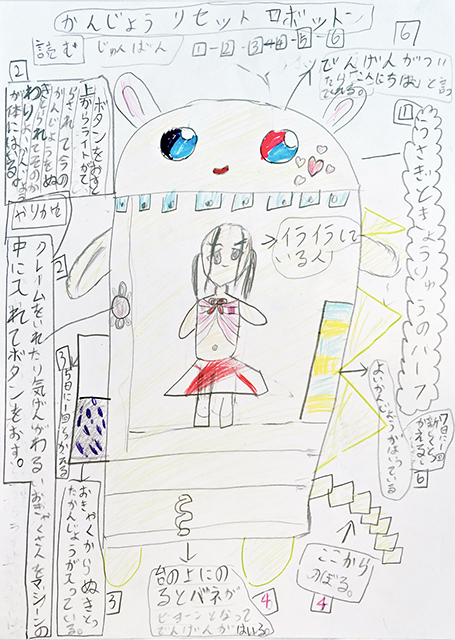 かんじょうリセットロボットン
読む じゅんばん ①-②-③-④-⑤-⑥
6
でんげんがつい
たら「こんにちは」と言
ってくれる。
1
うさぎときょうりゅうのハーフ
2
ボタンをおすと
上からライトがて
らされて今の
かんじょうをぬ
きとられてそのか
わりよいかんじょう
が体にはいる。
やりかた
2
クレームをいれたり気げんがわるいおきゃくさんをマシーンの
中に入れてボタンをおす。
→イライラして
いる人
3
5日に1回くらいかえる
おきゃくからぬきとっ
たかんじょうが入っている。
3
よいかんじょうがはいっている
7日に1回
新しくと
りかえる。
6
台の上にの
るとバネが
ビヨーンとなって
でんげんがはいる。
4
ここから
のぼる。
4